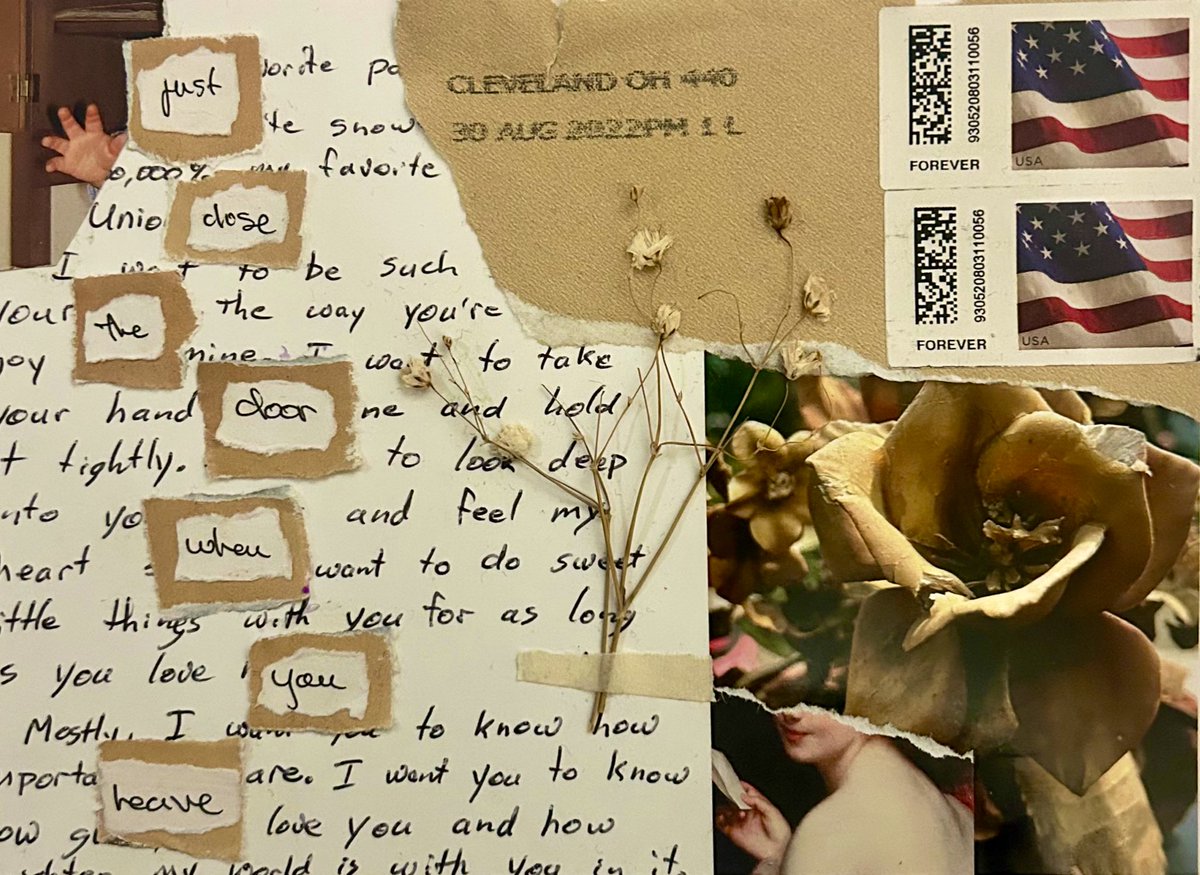 just
close
the
door
when
you
leave
snow
0,000% my favorite
Unio
I want to be such
your the way you're
mine. I want to take
your hand and hold
t tightly. to look deep
nto yo and feel my
heart want to do sweet
ittle things with you for as long
s you love
Mostly, I want you to know how
mporta are. I want you to know
ow love you and how
my world is with you in it.
CLEVELAND OH 440
30 AUG 2022PM 1 L
FOREVER
930520803110056
USA
FOREVER
930520803110056
USA